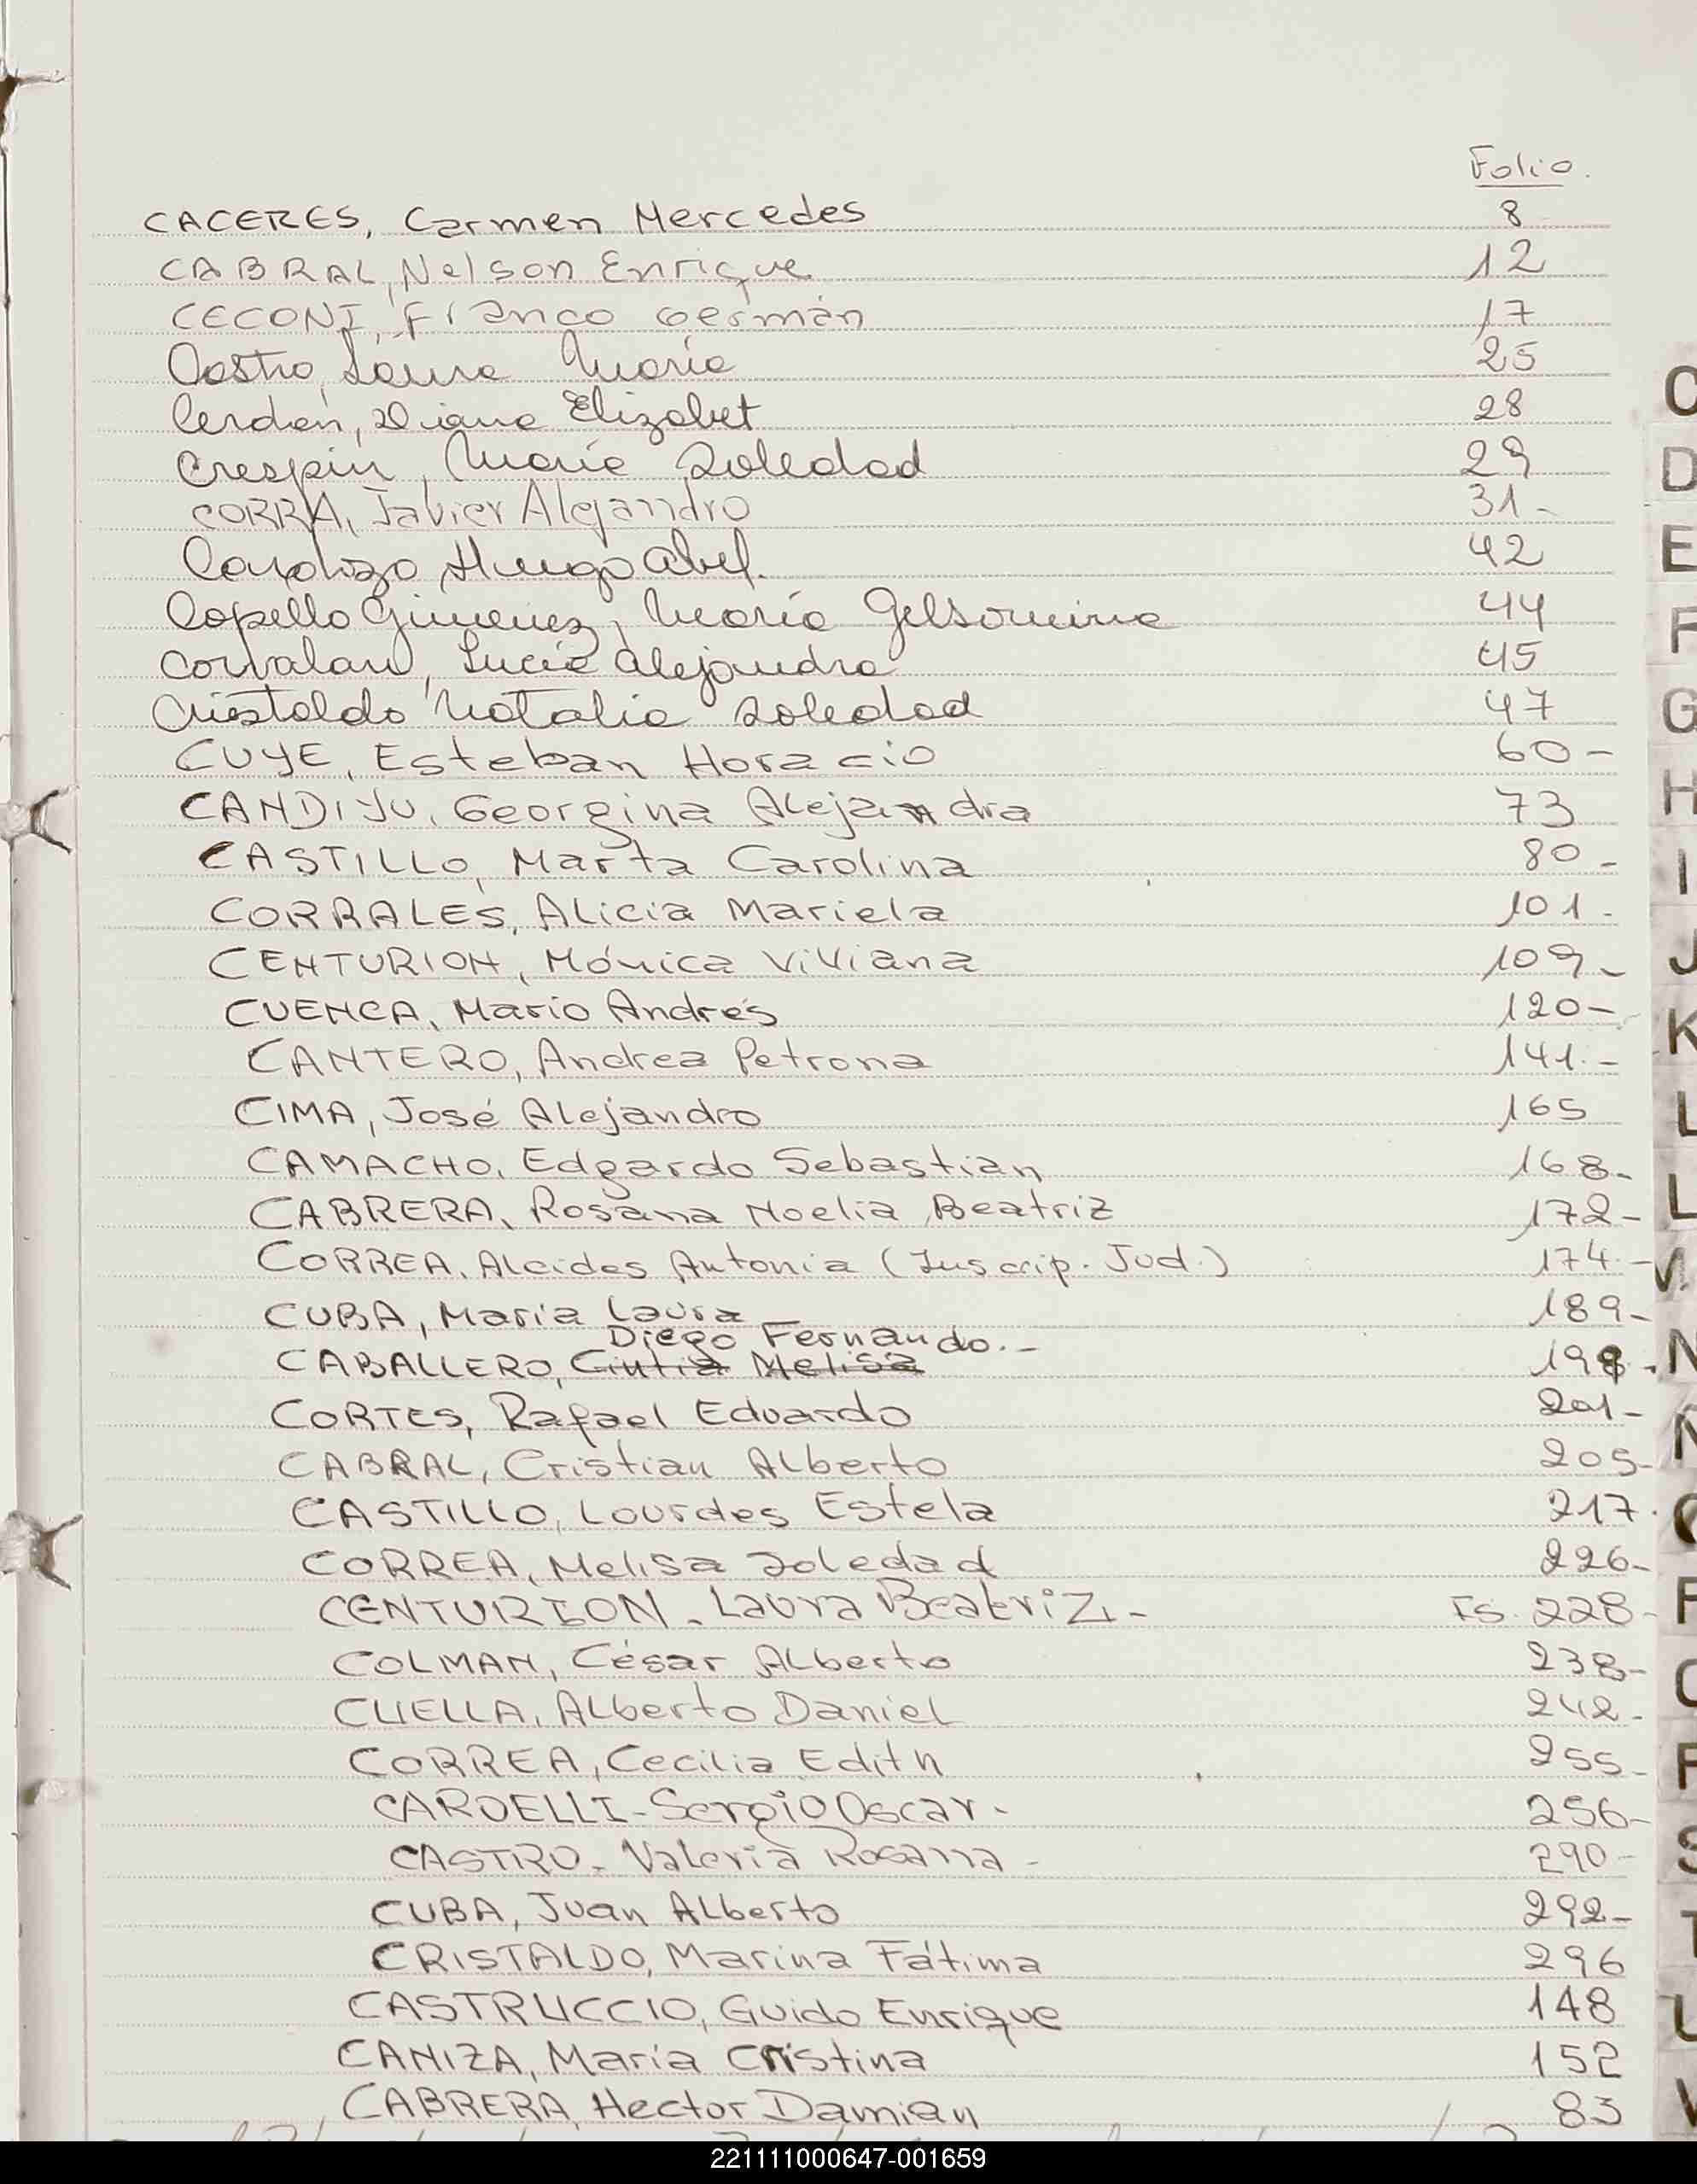 Folio.
CACERES, Carmen Mercedes 8
CABRAL, Nelson Enrique 12
CECONI, Franco Germán 17
Castro, Laura María 25
Cerdán, Diana Elizabet 28
Crespín, María Soledad 29
CORRA, Javier Alejandro 31-
Cardozo, Hugo Abel. 42
Capello Gimenez, María Gelsomina 44
Corvalan, Lucía Alejandra 45
Cristaldo Natalia Soledad 47
CUYE, Esteban Horacio 60-
CANDIJU, Georgina Alejandra 73
CASTILLO, Marta Carolina 80-
CORRALES, Alicia Mariela 101-
CENTURION, Mónica Viviana 109-
CUENCA, Mario Andrés 120-
CANTERO, Andrea Petrona 141.-
CIMA, José Alejandro 165
CAMACHO, Edgardo Sebastián 168-
CABRERA, Rosana Noelia Beatriz 172-
CORREA, Alcides Antonia (Inscrip. Jud.) 174.-
CUBA, María Laura 189-
Diego Fernando.-
CABALLERO, Cintia Melisa 198-
CORTES, Rafael Eduardo 201-
CABRAL, Cristian Alberto 205-
CASTILLO, Lourdes Estela 217.
CORREA, Melisa Soledad 226-
CENTURION. Laura Beatriz.- Fs. 228-
COLMAN, César Alberto 238-
CUELLA, Alberto Daniel 242-
CORREA, Cecilia Edith 255-
CARDELLI-Sergio Oscar- 256-
CASTRO. Valeria Rosana- 290-
CUBA, Juan Alberto 292-
CRISTALDO, Marina Fátima 296
CASTRUCCIO, Guido Enrique 148
CANIZA, María Cristina 152
CABRERA, Hector Damián 83
C
D
E
F
G
H
I
J
K
L
L
M
N
Ñ
O
P
Q
R
S
T
U
V
221111000647-001659